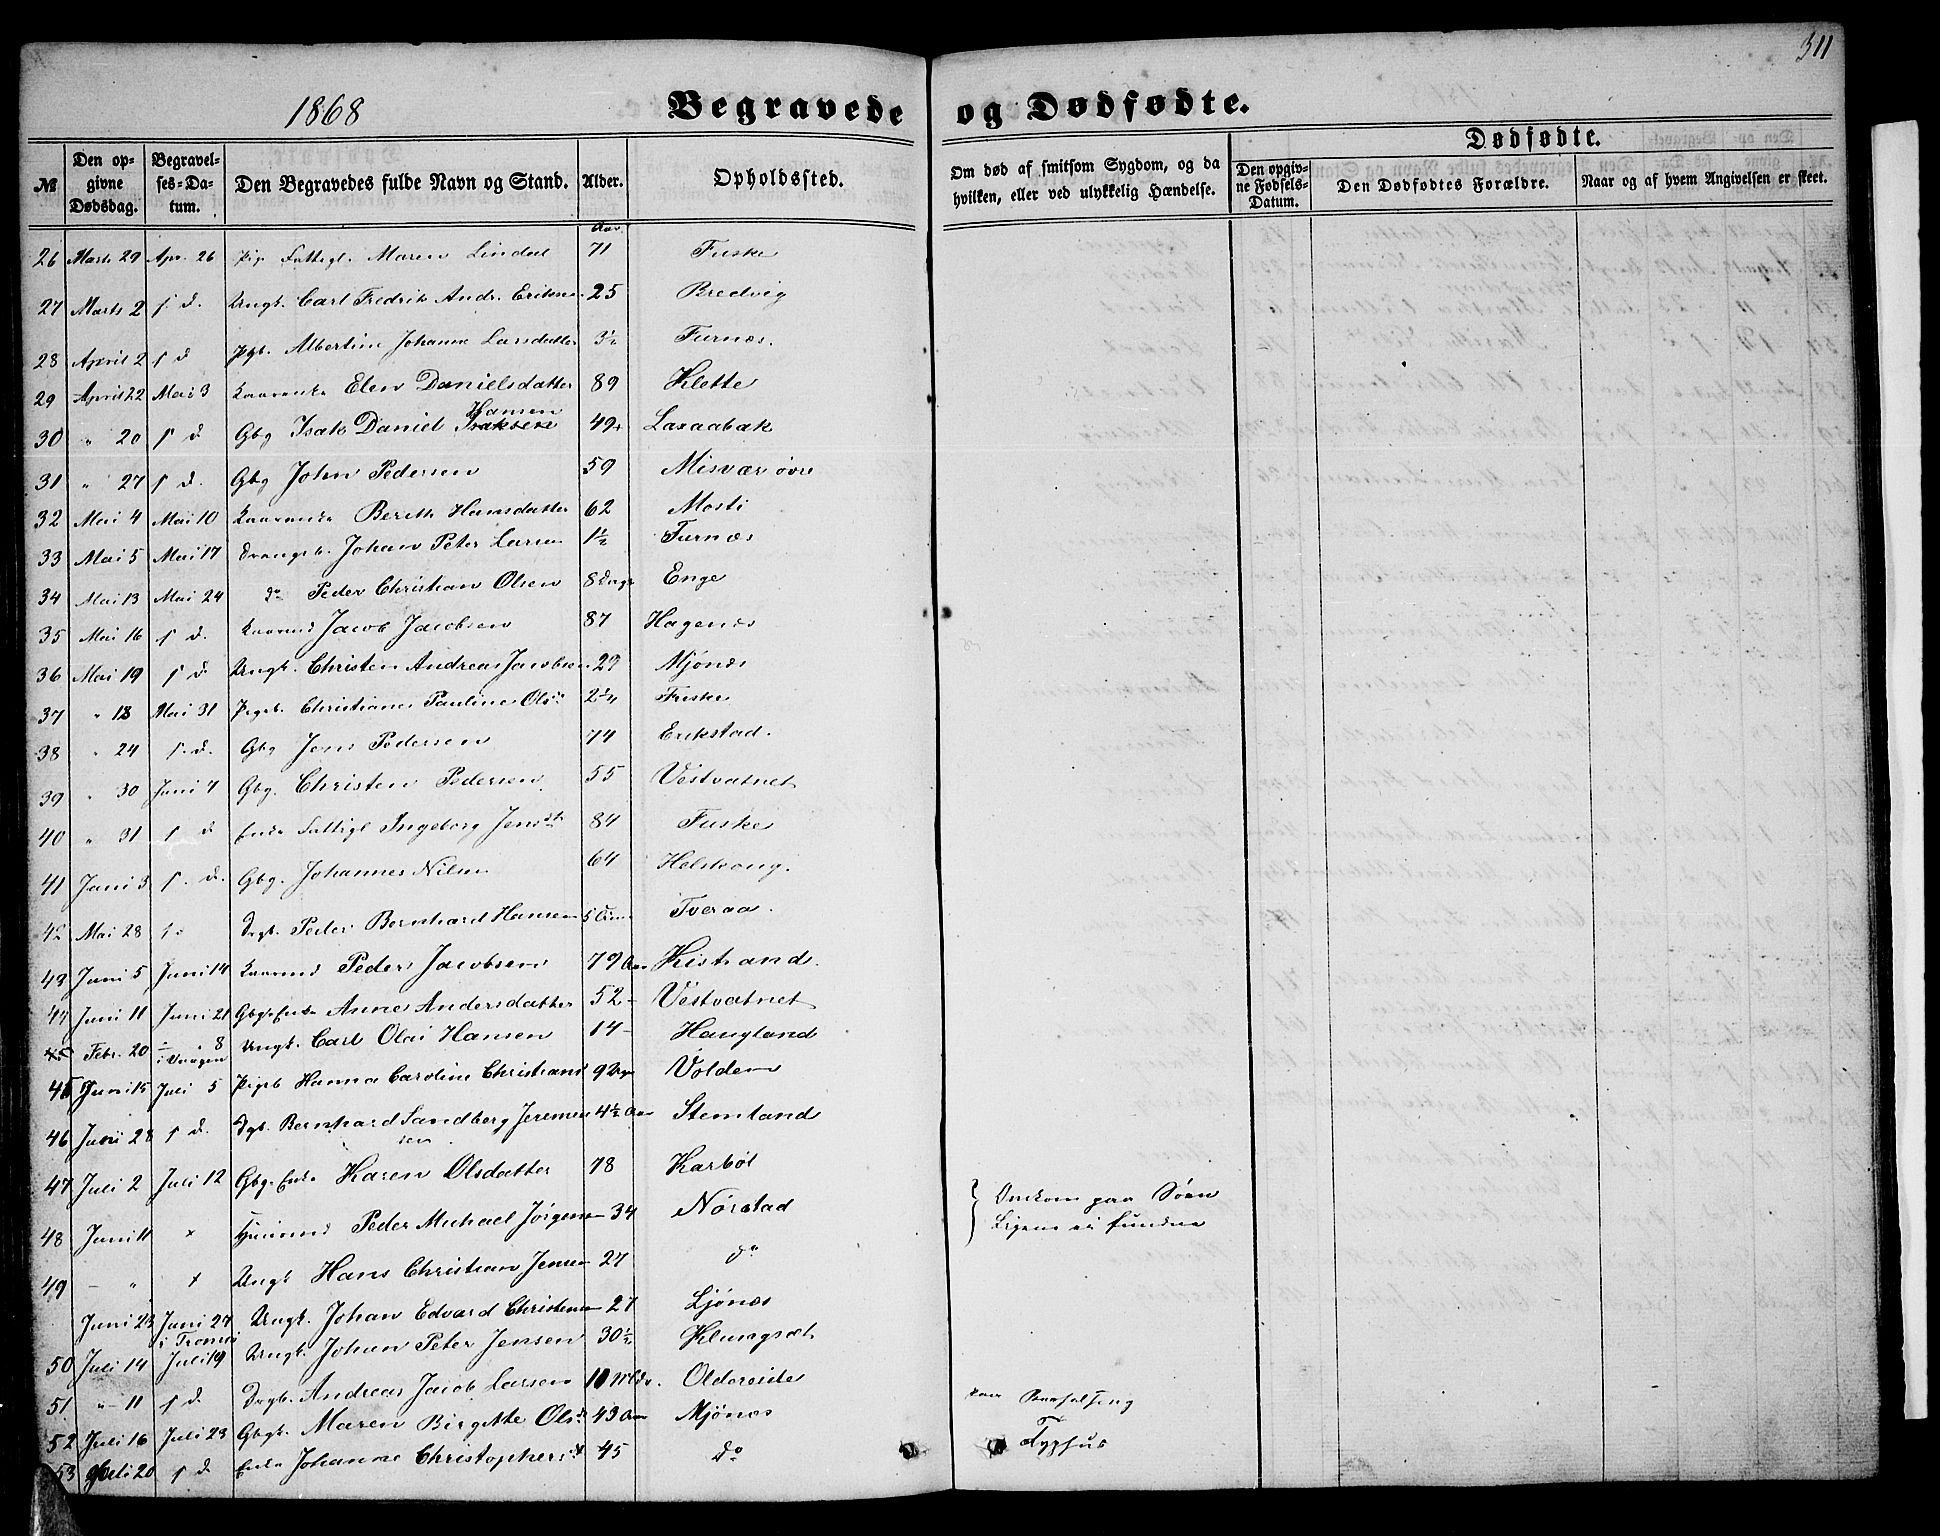 311
1868 Begravede og Dødfødte.
Dødfødte.
№ Den opgivne Dødsdag. Begravelses-Datum. Den Begravedes fulde Navn og Stand. Alder. Opholdssted. Om død af smitsom Sygdom, og da hvilken, eller ved ulykkelig Hændelse. Den opgivne Fødsels-Datum. Den Dødfødtes Forældre. Naar og af hvem Angivelsen er skeet.
26 Marts 29 Apr. 26 Pige Fattigl. Maren Lindal Aar 71 Fuske
27 Marts 2 s d. Ungk. Carl Fredrik Andr. Eriksen 25 Bredvig
28 April 2 s d Pgb. Albertine Johanne Larsdatter 3½ Furnæs.
29 April 22 Mai 3 Kaarenke Elen Danielsdatter 89 Klette
30 " 20 s d Gbg Isak Daniel Isaksen Hansen 49 Laxaabak
31 " 27 s d. Gbg John Pedersen 59 Misvær øvre
32 Mai 4 Mai 10 Kaarenke Berith Hansdatter 62 Mosti
33 Mai 5 Mai 17 Drengeb. Johan Peter Larsen 1½ Furnæs
34 Mai 13 Mai 24 do Peder Christian Olsen 8 Dage Enge
35 Mai 16 s d. Kaarmd Jacob Jacobsen 87 Hagenæs
36 Mai 19 s d. Ungk. Christen Andreas Jacobsen 29 Mjønæs
37 " 18 Mai 31 Pigeb. Christiane Pauline Olsdr 2¼ Fuske
38 " 24 s. d. Gbg Jens Pedersen 74 Erikstad.
39 " 30 Juni 7 Gbg. Christen Pedersen 55 Vestvatnet
40 " 31 s d Enke Fattigl Ingeborg Jensdtr 84 Fuske
41 Juni 3 s. d. Gbg. Johannes Nilsen 64 Helskong.
42 Mai 28 s d Drgb. Peder Bernhard Hansen 5 Tveraa.
43 Juni 5 Juni 14 Kaarmd Peder Jacobsen 79 Aar Kistrand.
44 Juni 11 Juni 21 Gbgs Enke Anne Andersdatter 52 - Vestvatnet
45 Febr. 20 8 i Vaagen Ungk. Carl Olai Hansen 14 - Haugland
45 Juni 15 Juli 5 Pigeb Hanna Caroline Christiansd 9 Dge Volden
46 Juni 28 s d. Dgb. Bernhard Sandberg Jeremensen 4½ Aar Stemland
47 Juli 2 Juli 12 Gbgs Enke Karen Olsdatter 78 Karbøl
48 Juni 11 × Huusmd Peder Michael Jørgensen 34 Nørstad } Omkom paa Søen
Ligene ei fundne
49 - " × Ungk Hans Christian Jensen 27 do
Juni 23 Juni 27 i Tromsø Ungk. Johan Edvard Christensen 27 Ljønæs
50 Juli 14 Juli 19 Ungk. Johan Peter Jensen 30½ Klungset
51 " 11 s d Drgb. Andreas Jacob Larsen 10 Mdr. Oldereide
52 Juli 16 Juli 23 Gbgk. Maren Birgitte Olsdr 43 Aar Mjønæs Barselseng
53 Juli 20 s d Enke Johanne Christophersdt 45 do Typhus